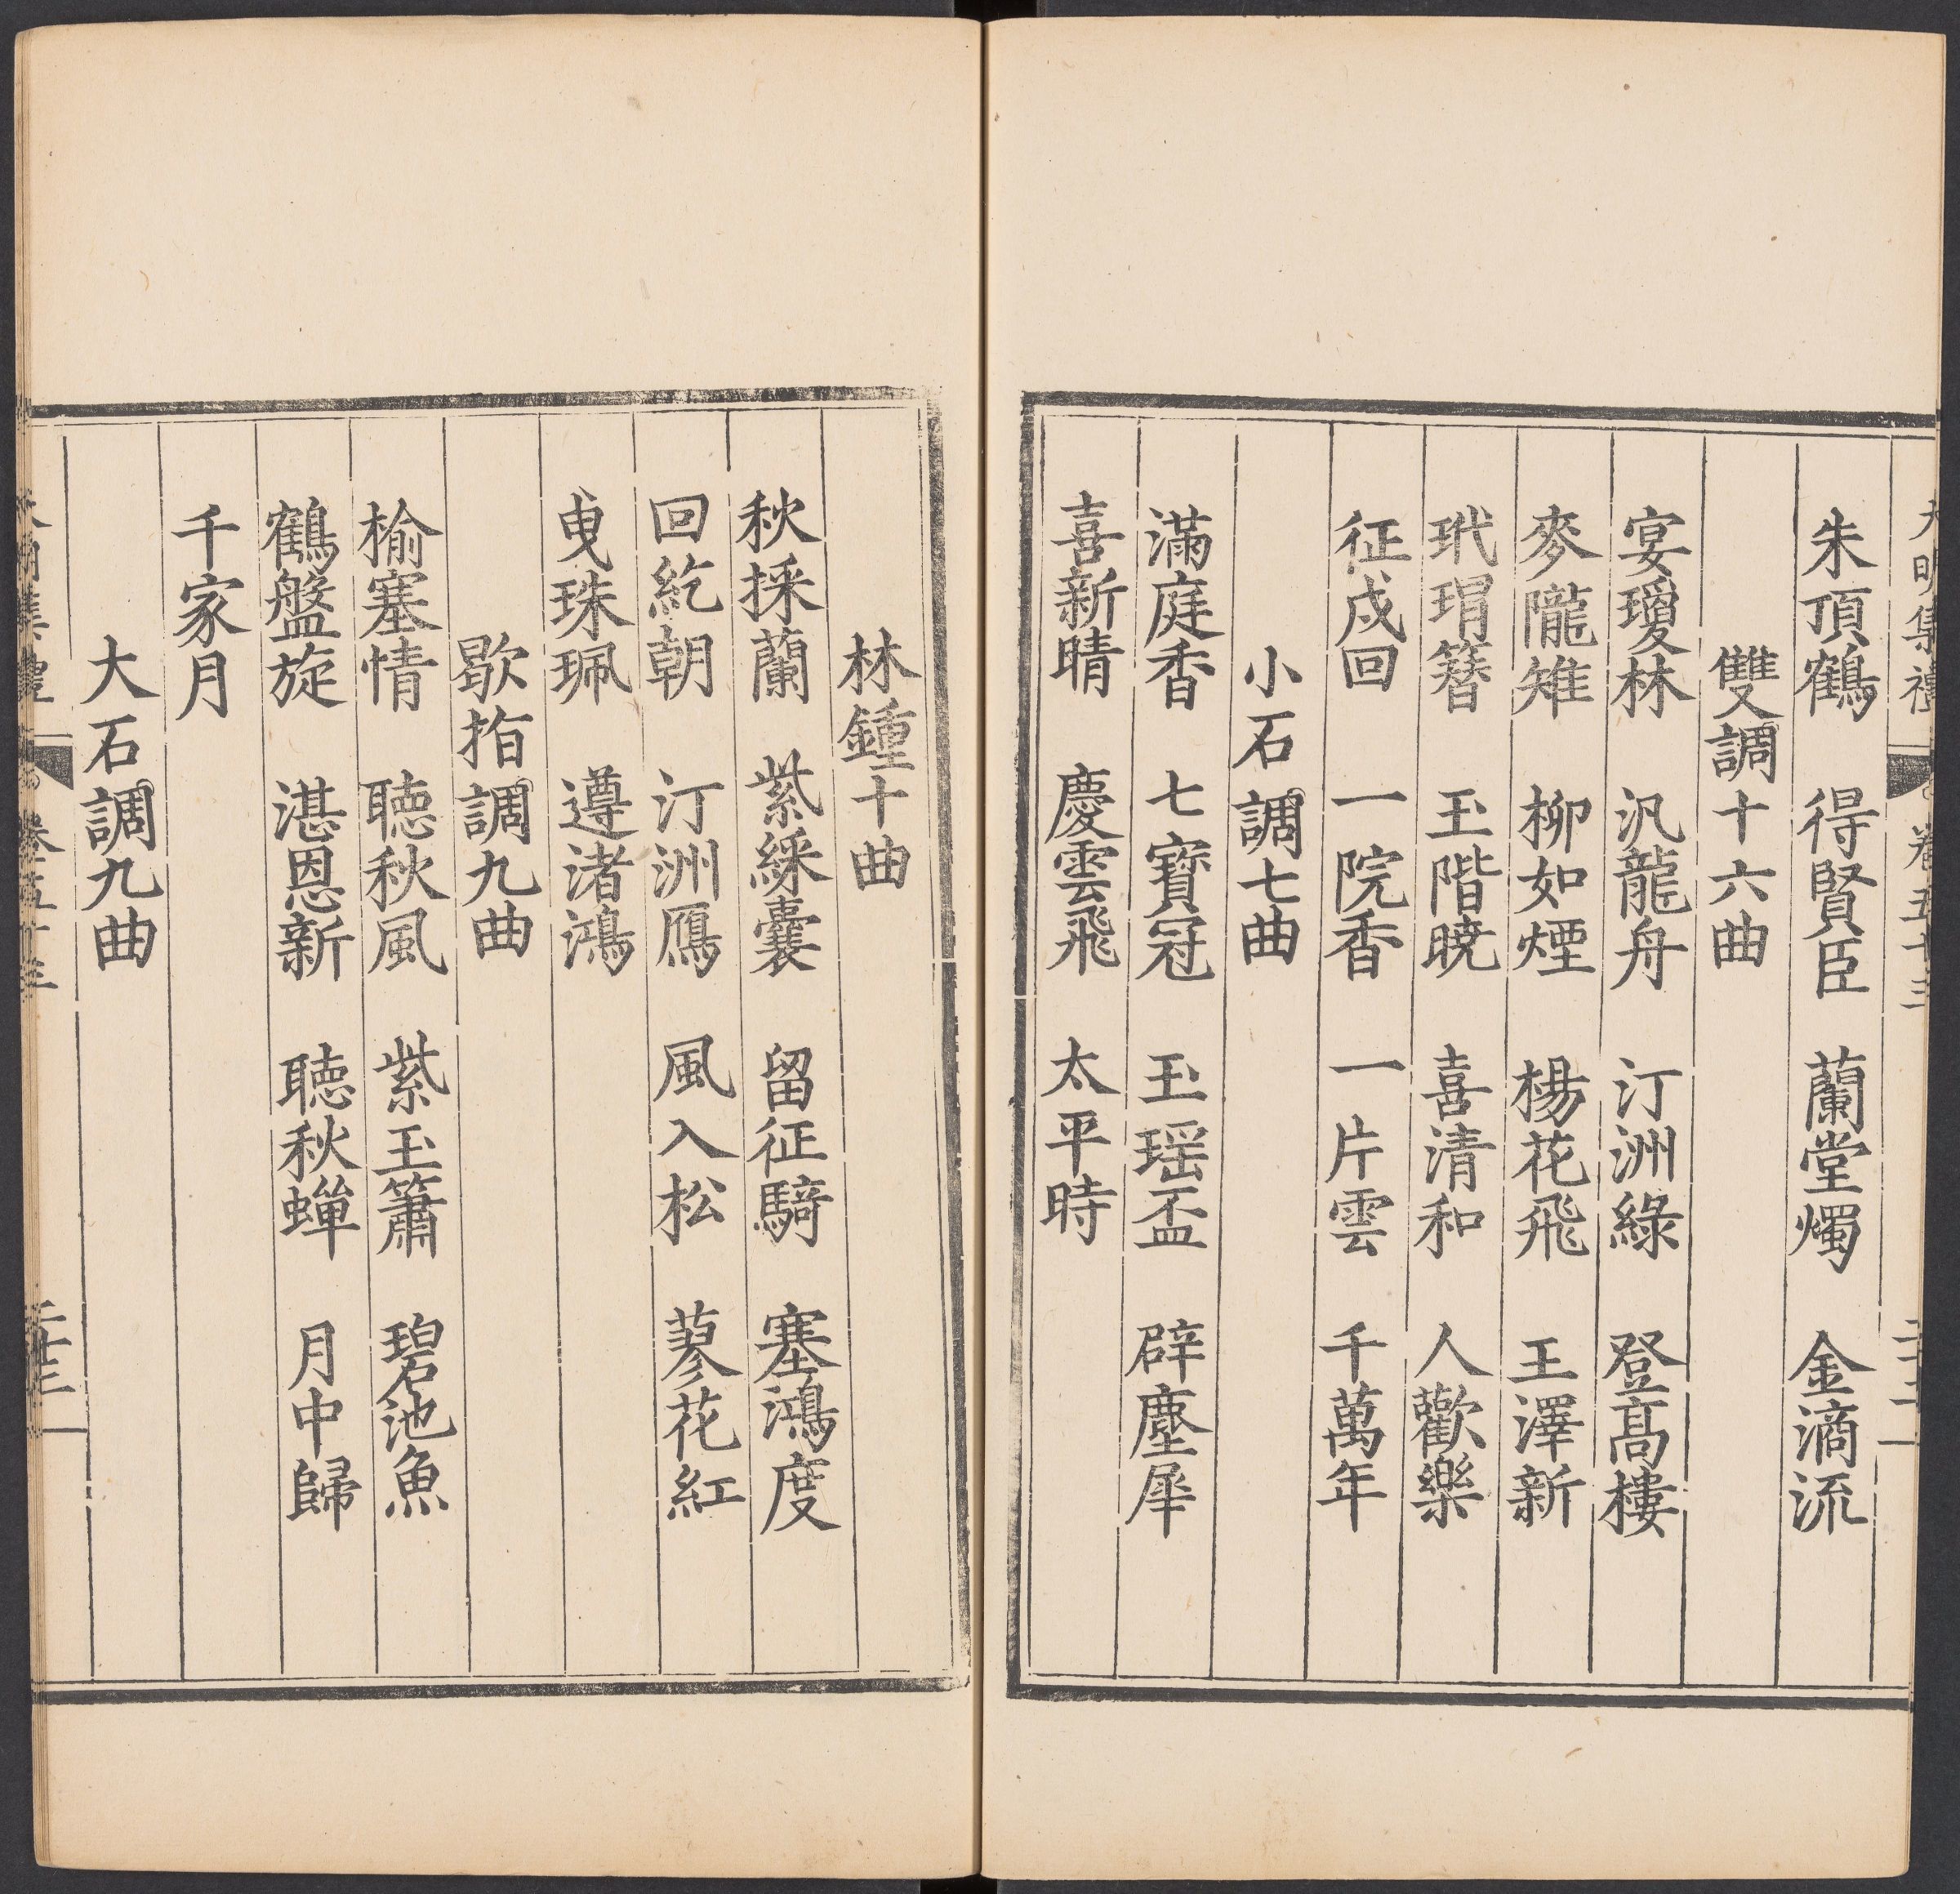 大明集禮 卷五十三 二十二
朱頂鶴 得賢臣 蘭堂燭 金滴流
雙調十六曲
宴瓊林 汎龍舟 汀洲綠 登髙樓
麥隴雉 柳如煙 楊花飛 王澤新
玳瑁簪 玉階曉 喜清和 人歡樂
征戍回 一院香 一片雲 千萬年
小石調七曲
滿庭香 七寶冠 玉瑶盃 辟塵犀
喜新晴 慶雲飛 太平時
林鍾十曲
秋採蘭 紫綵囊 留征騎 塞鴻度
回紇朝 汀洲鴈 風入松 蓼花紅
曵珠珮 遵渚鴻
歇指調九曲
榆塞情 聽秋風 紫玉簫 碧池魚
鶴盤旋 湛恩新 聽秋蟬 月中歸
千家月
大石調九曲
大明集禮 卷五十三 二十三